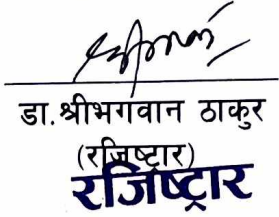 डा.श्रीभगवान ठाकुर
(रजिष्ट्रार)
रजिष्ट्रार